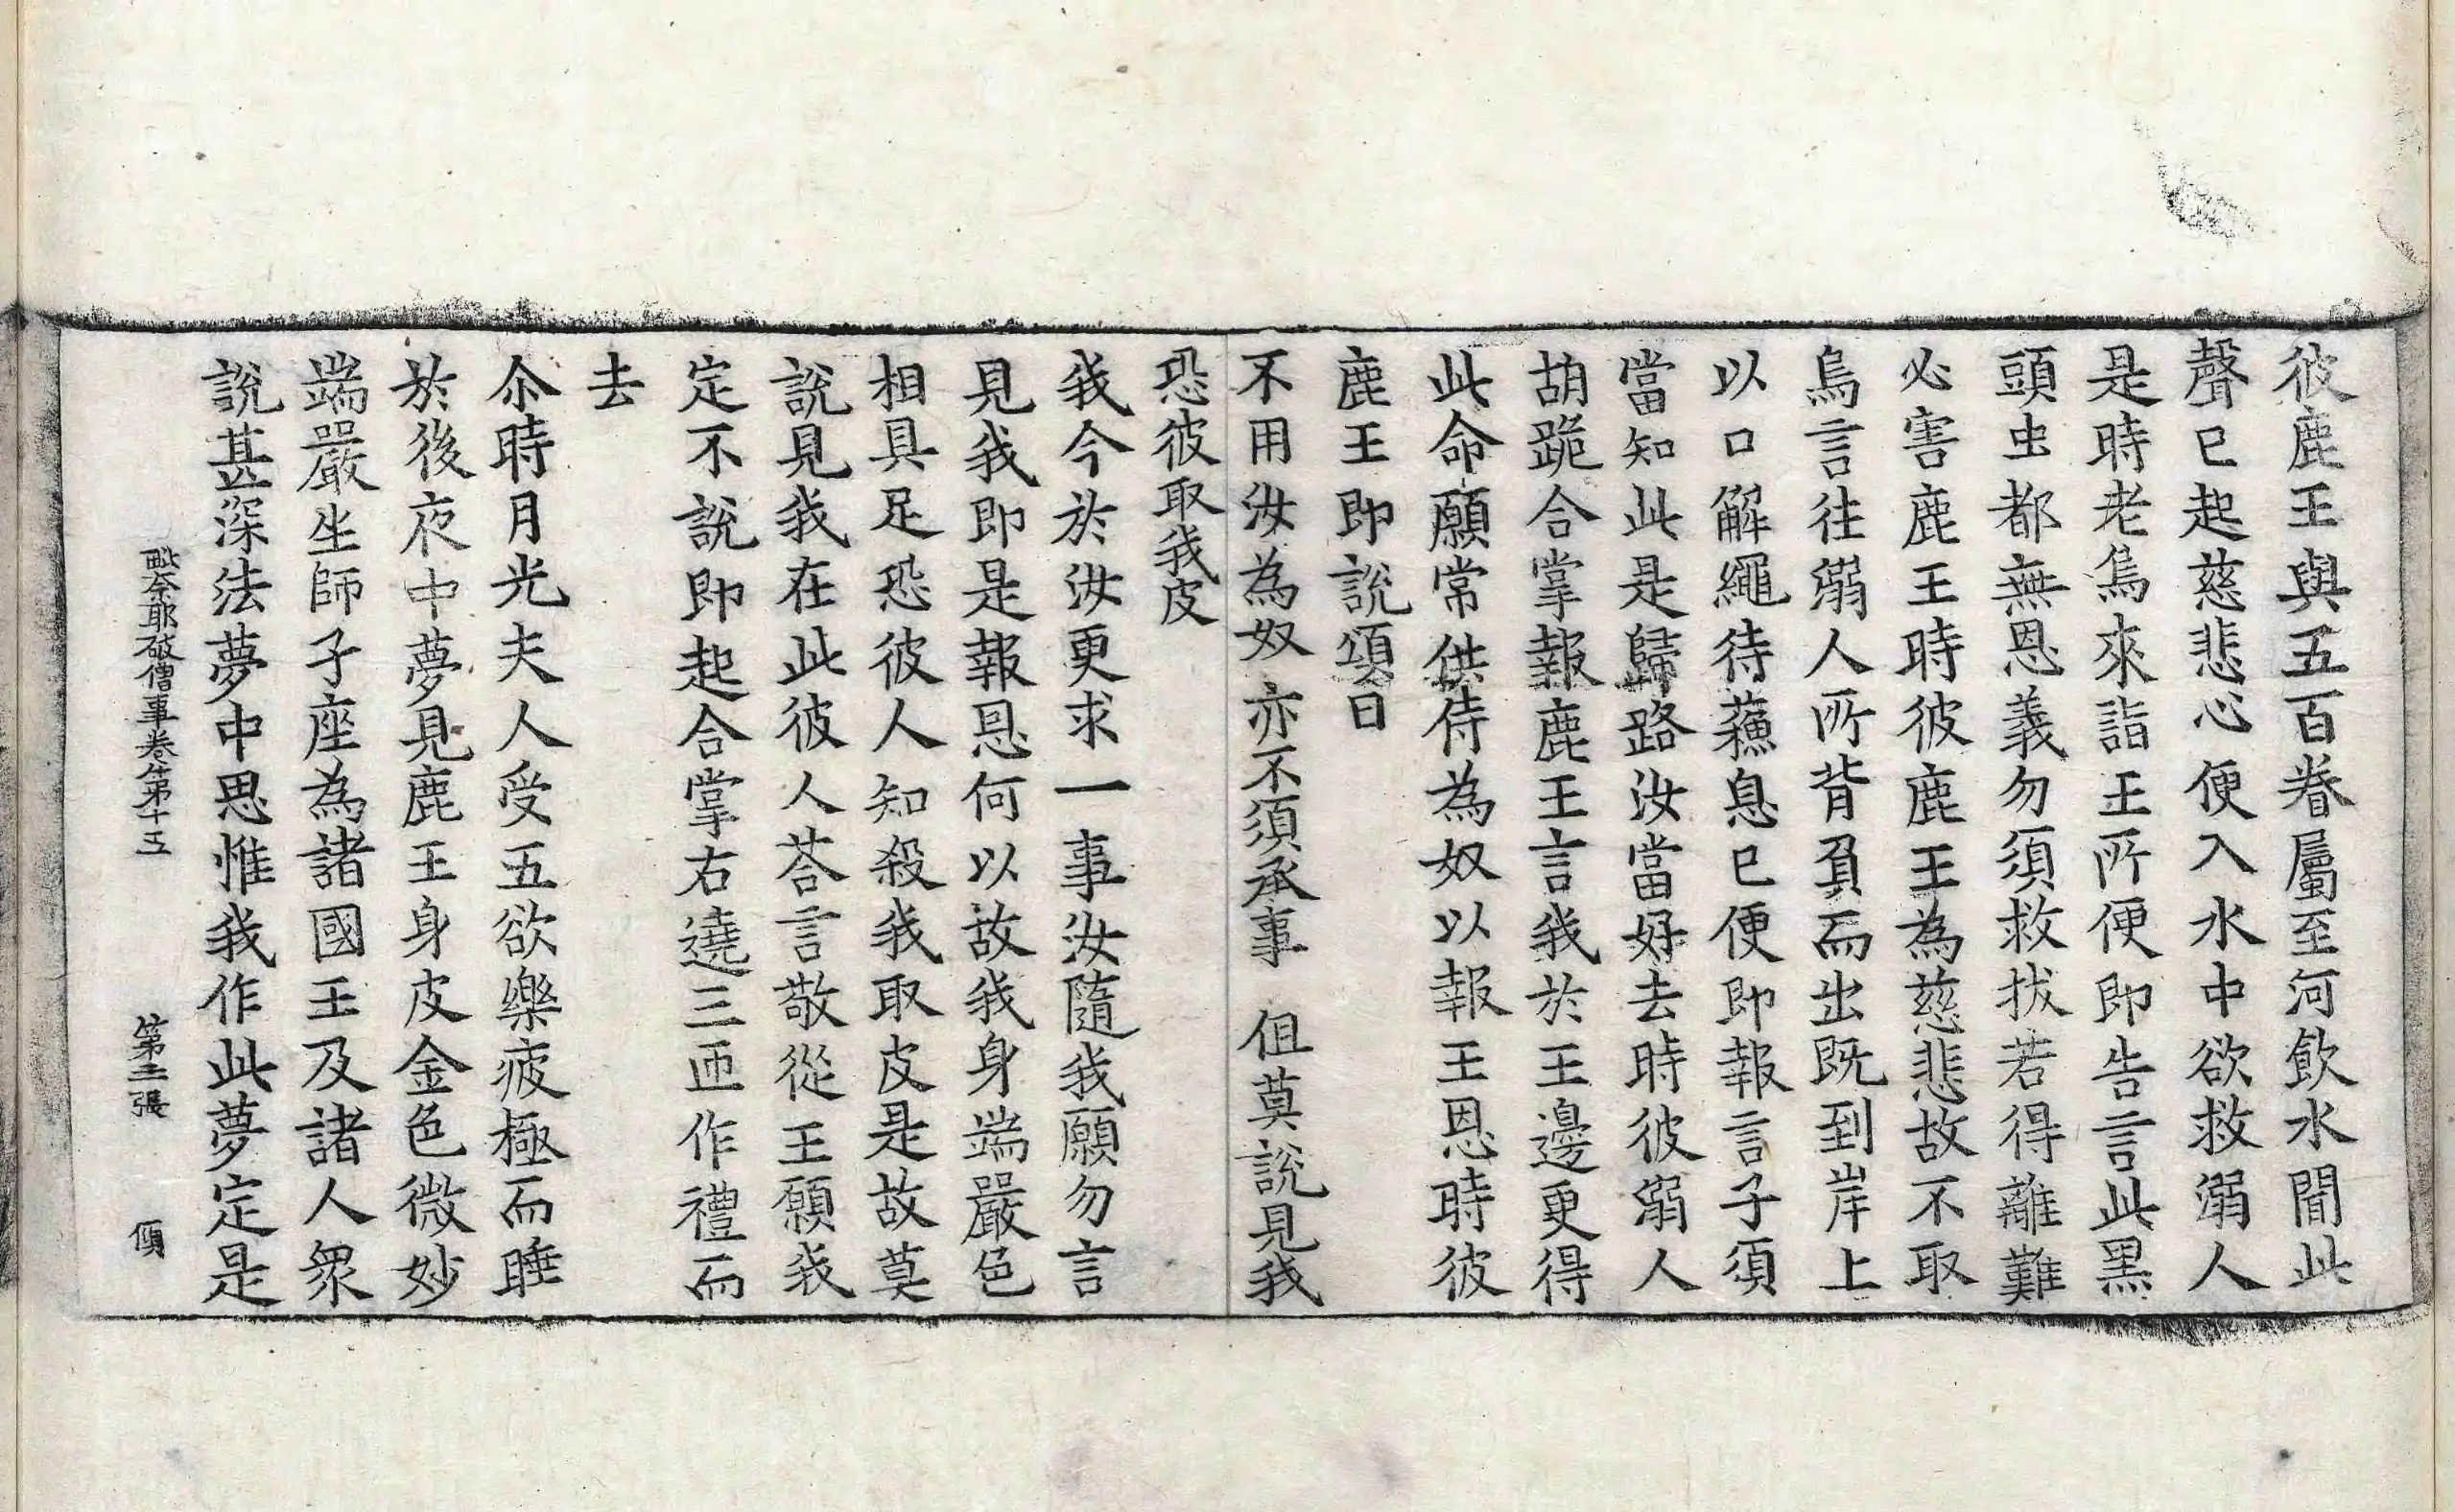 彼鹿王與五百眷屬至河飲水聞此
聲已起慈悲心便入水中欲救溺人
是時老烏來詣王所便即告言此黑
頭虫都無恩義勿須救拔若得離難
必害鹿王時彼鹿王為慈悲故不取
烏言往溺人所背負而出既到岸上
以口解繩待蘓息已便即報言子須
當知此是歸路汝當好去時彼溺人
胡跪合掌報鹿王言我於王邊更得
此命願常供侍為奴以報王恩時彼
鹿王即說頌曰
不用汝為奴 亦不須承事 但莫說見我
恐彼取我皮
我今於汝更求一事汝隨我願勿言
見我即是報恩何以故我身端嚴色
相具足恐彼人知殺我取皮是故莫
說見我在此彼人荅言敬從王願我
定不說即起合掌右遶三匝作禮而
去
尒時月光夫人受五欲樂疲極而睡
於後夜中夢見鹿王身皮金色微妙
端嚴坐師子座為諸國王及諸人衆
說甚深法夢中思惟我作此夢定是
毗奈耶破僧事卷第十五 第二張 傾